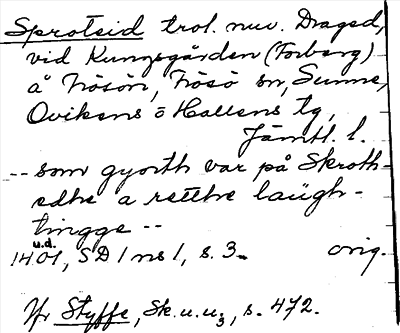 Sprotsid trol. nuv. Dragsed,
vid Kungsgården (Forberg)
å Frösön, Frösö sn, Sunne,
Ovikens o Hallens tg,
Jämtl. l.
-- som gyorth var på Skroth-
edhe a retthe laügh-
tingge --
u.d.
1401, SD 1 ns 1, s. 3. orig.
Jfr Styffe, Sk.u.u3, s. 472.